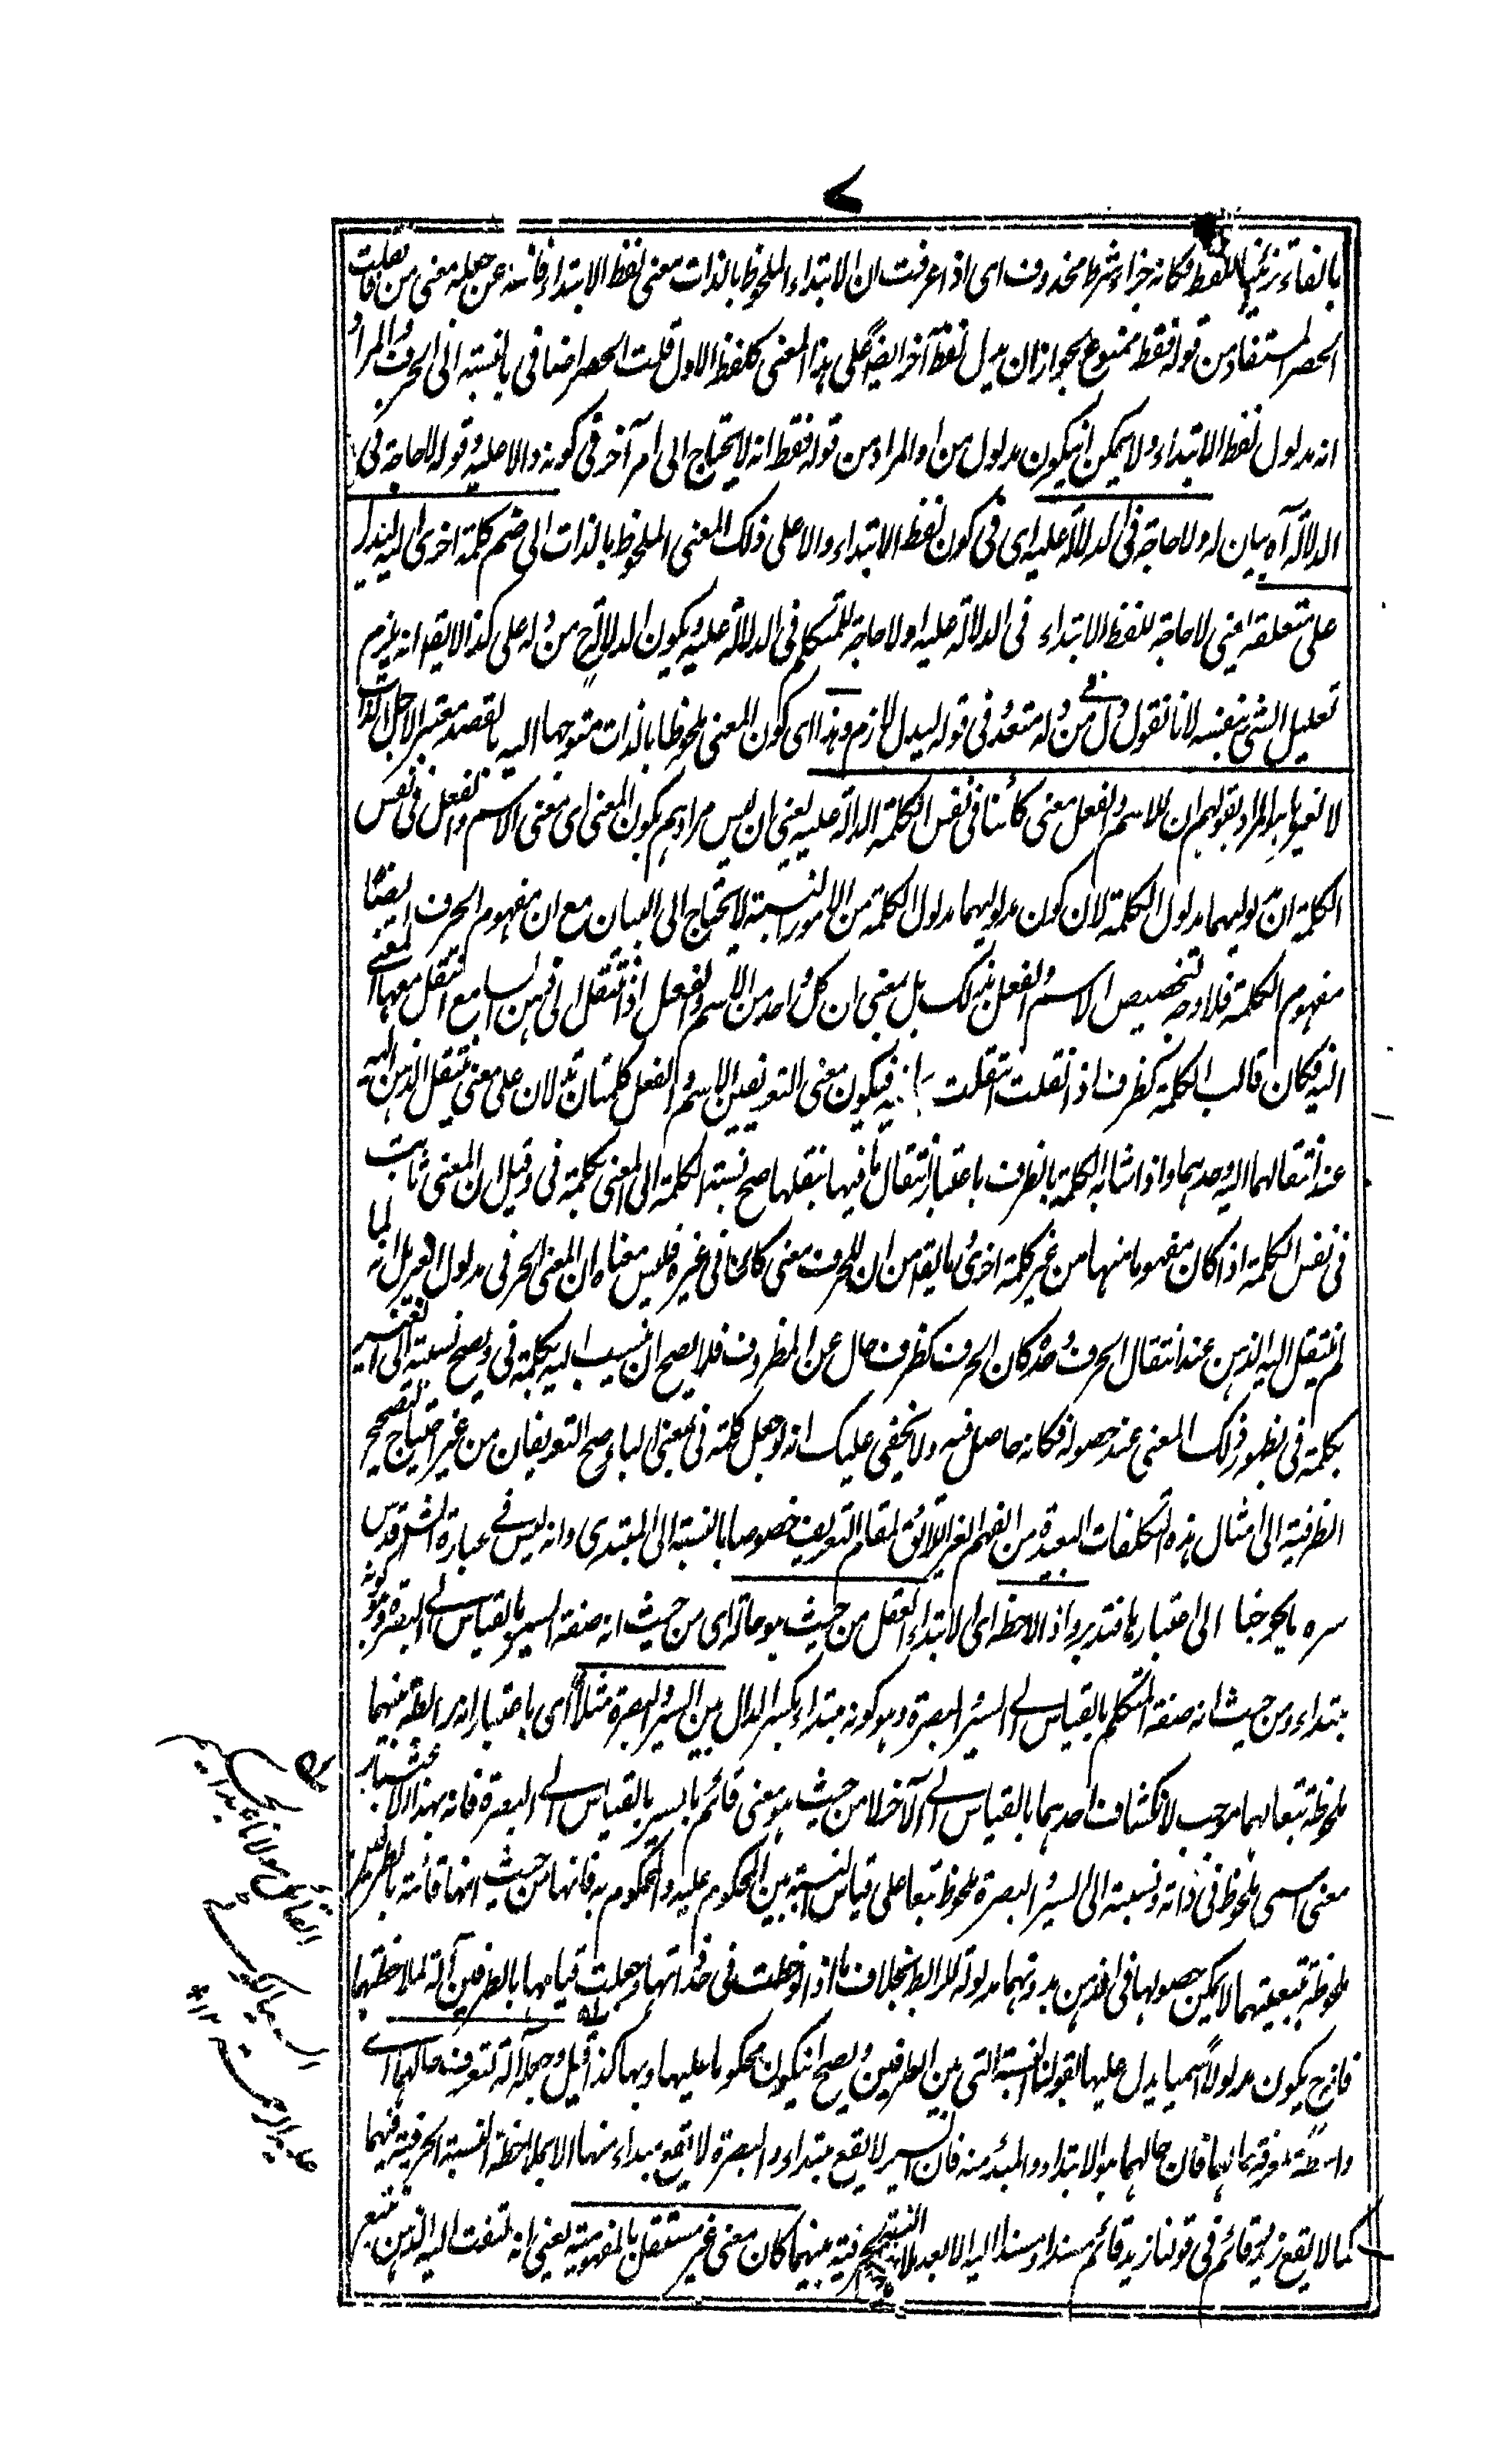 ٧
بالفاء تزئينا للفظ فكانه جزاء شرط محذوف اى اذا عرفت ان الابتداء الملحوظ بالذات معنى لفظ الابتداء فانته عن جعله معنى من فان قلت
الحصر المستفاد من قوله فقط ممنوع بجواز ان يدل لفظ آخر ايضا على هذا المعنى كلفظ الاول قلت الحصر اضافى بالنسبة الى الحرف والمراد
انه مدلول لفظ الابتداء ولا يمكن ان يكون مدلول من او المراد من قوله فقط انه لا يحتاج الى امر آخر فى كونه دالا عليه وقوله لا حاجة فى
الدلالة آه بيان له ولا حاجة فى الدلالة عليه اى فى كون لفظ الابتداء دالا على ذلك المعنى الملحوظ بالذات الى ضم كلمة اخرى اليه ليدل
على متعلقه يعنى لا حاجة للفظ الابتداء فى الدلالة عليه او لا حاجة للمتكلم فى الدلالة عليه ويكون الدلالة ح من دله على كذا لا يقد انه يلزم
تعليل الشئ بنفسه لانا نقول دل من دله متعد فى قوله ليدل لازم وهذا اى كون المعنى ملحوظا بالذات متوجها اليه بالقصد معتبرا لاجل الذات
لا لغيرها هو المراد بقولهم ان للاسم والفعل معنى كائنا فى نفس الكلمة الدالة عليه يعنى ان ليس مرادهم بكون المعنى اى معنى الاسم والفعل فى نفس
الكلمة ان مدلوليهما مدلول الكلمة لان كون مدلوليهما مدلول الكلمة من الامور البينة لا يحتاج الى البيان مع ان مفهوم الحرف ايضا
مفهوم الكلمة فلا وجه لتخصيص الاسم والفعل بذلك بل معنى ان كل واحد من الاسم والفعل اذا انتقل الى ذهن السامع انتقل معها المعنى
اليه فكان قالب الكلمة كظرف اذا نقلت انتقلت بما فيه فيكون معنى التعريفين الاسم والفعل كلمتان تدلان على معنى ينتقل الذهن اليه
عند انتقالهما اليه وحدهما واذا شابه الكلمة بالظرف باعتبار انتقال ما فيها بنقلها صح نسبة الكلمة الى المعنى بكلمة فى وقيل ان المعنى ثابت
فى نفس الكلمة اذا كان مفهوما منها من غير كلمة اخرى وما يقد من ان للحرف معنى كائنا فى غيره فليس معناه ان المعنى الحرفى مدلول الغير بل انه لما
لم ينتقل اليه الذهن عند انتقال الحرف وحده كان الحرف كظرف خال عن المظروف فلا يصح ان ينسب اليه بكلمة فى ويصح نسبته الى الغير
بكلمة فى لظهور ذلك المعنى عند حصوله فكانه حاصل فيه ولا يخفى عليك انه لو جعل كلمة فى بمعنى الباء صح التعريفان من غير احتياج لتصحيح
الظرفية الى امثال هذه التكلفات البعيدة من الفهم الغير اللائق لمقام التعريف خصوصا بالنسبة الى المبتدى وانه ليس فى عبارة الشر قدس
سره ما يحوجنا الى اعتبارها فتدبر واذا لاحظه اى الابتداء العقل من حيث هو حالة اى من حيث انه صفة السير بالقياس الى البصرة وهو كونه
مبتداء ومن حيث انه صفة المتكلم بالقياس الى السير والبصرة وهو كونه مبتداء بكسر الدال بين السير والبصرة مثلا اى باعتبار انه رابطة بينهما
ملحوظة تبعا لهما موجب لانكشاف احدهما بالقياس الى الآخر لا من حيث هو معنى قائم بالسير بالقياس الى البصرة فانه بهذا الاعتبار
معنى اسمى ملحوظ فى ذاته ونسبته الى السير والبصرة ملحوظ تبعا على قياس النسبة بين المحكوم عليه والمحكوم به فانها من حيث انها قائمة بالطرفين
ملحوظة بتبعيتهما لا يمكن حصولها فى الذهن بدونهما مدلولة للرابط بخلاف ما اذا لوحظت فى حد ذاتها وجعلت قيامها بالطرفين آلة لملاحظتهما
فانه ح يكون مدلولا اسميا يدل عليها بقولنا النسبة التى بين الطرفين ويصح ان يكون محكوما عليها وبها كذا قيل وجعله آلة لتعرف حالهما اى
واسطة لمعرفة حالهما فان حالهما هو الابتداء والمبتدأ منه فان السير لا يقع مبتداء والبصرة لا يقع مبتداء منها الا بملاحظة النسبة الحرفية بينهما
كما لا يقع زيد وقائم فى قولنا زيد قائم مسندا ومسندا اليه الا بعد ملاحظة النسبة الحرفية بينهما كان معنى غير مستقل بالمفهومية يعنى انه يلتفت اليه الذهن بتبعية
القائل مولانا عبد الحكيم
السيالكوتى
عليه الرحمة ١٢